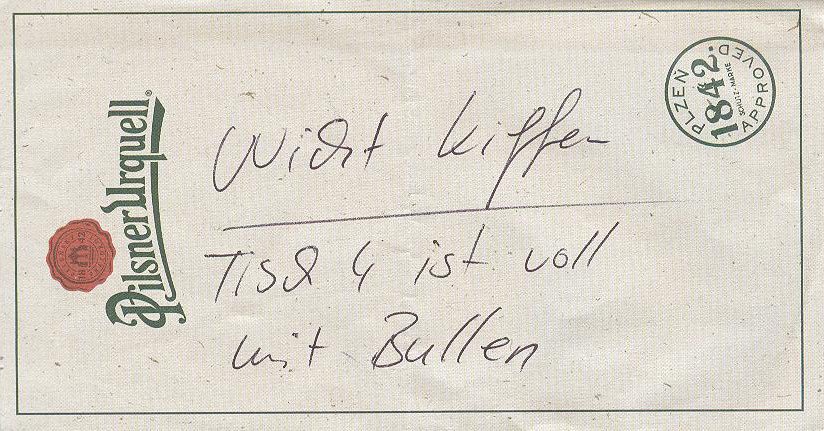 Pilsner Urquell®
1842
PLZEŇ
1842.
SCHUTZ-MARKE
APPROVED
Nicht Kiffen
Tisch 4 ist voll
mit Bullen